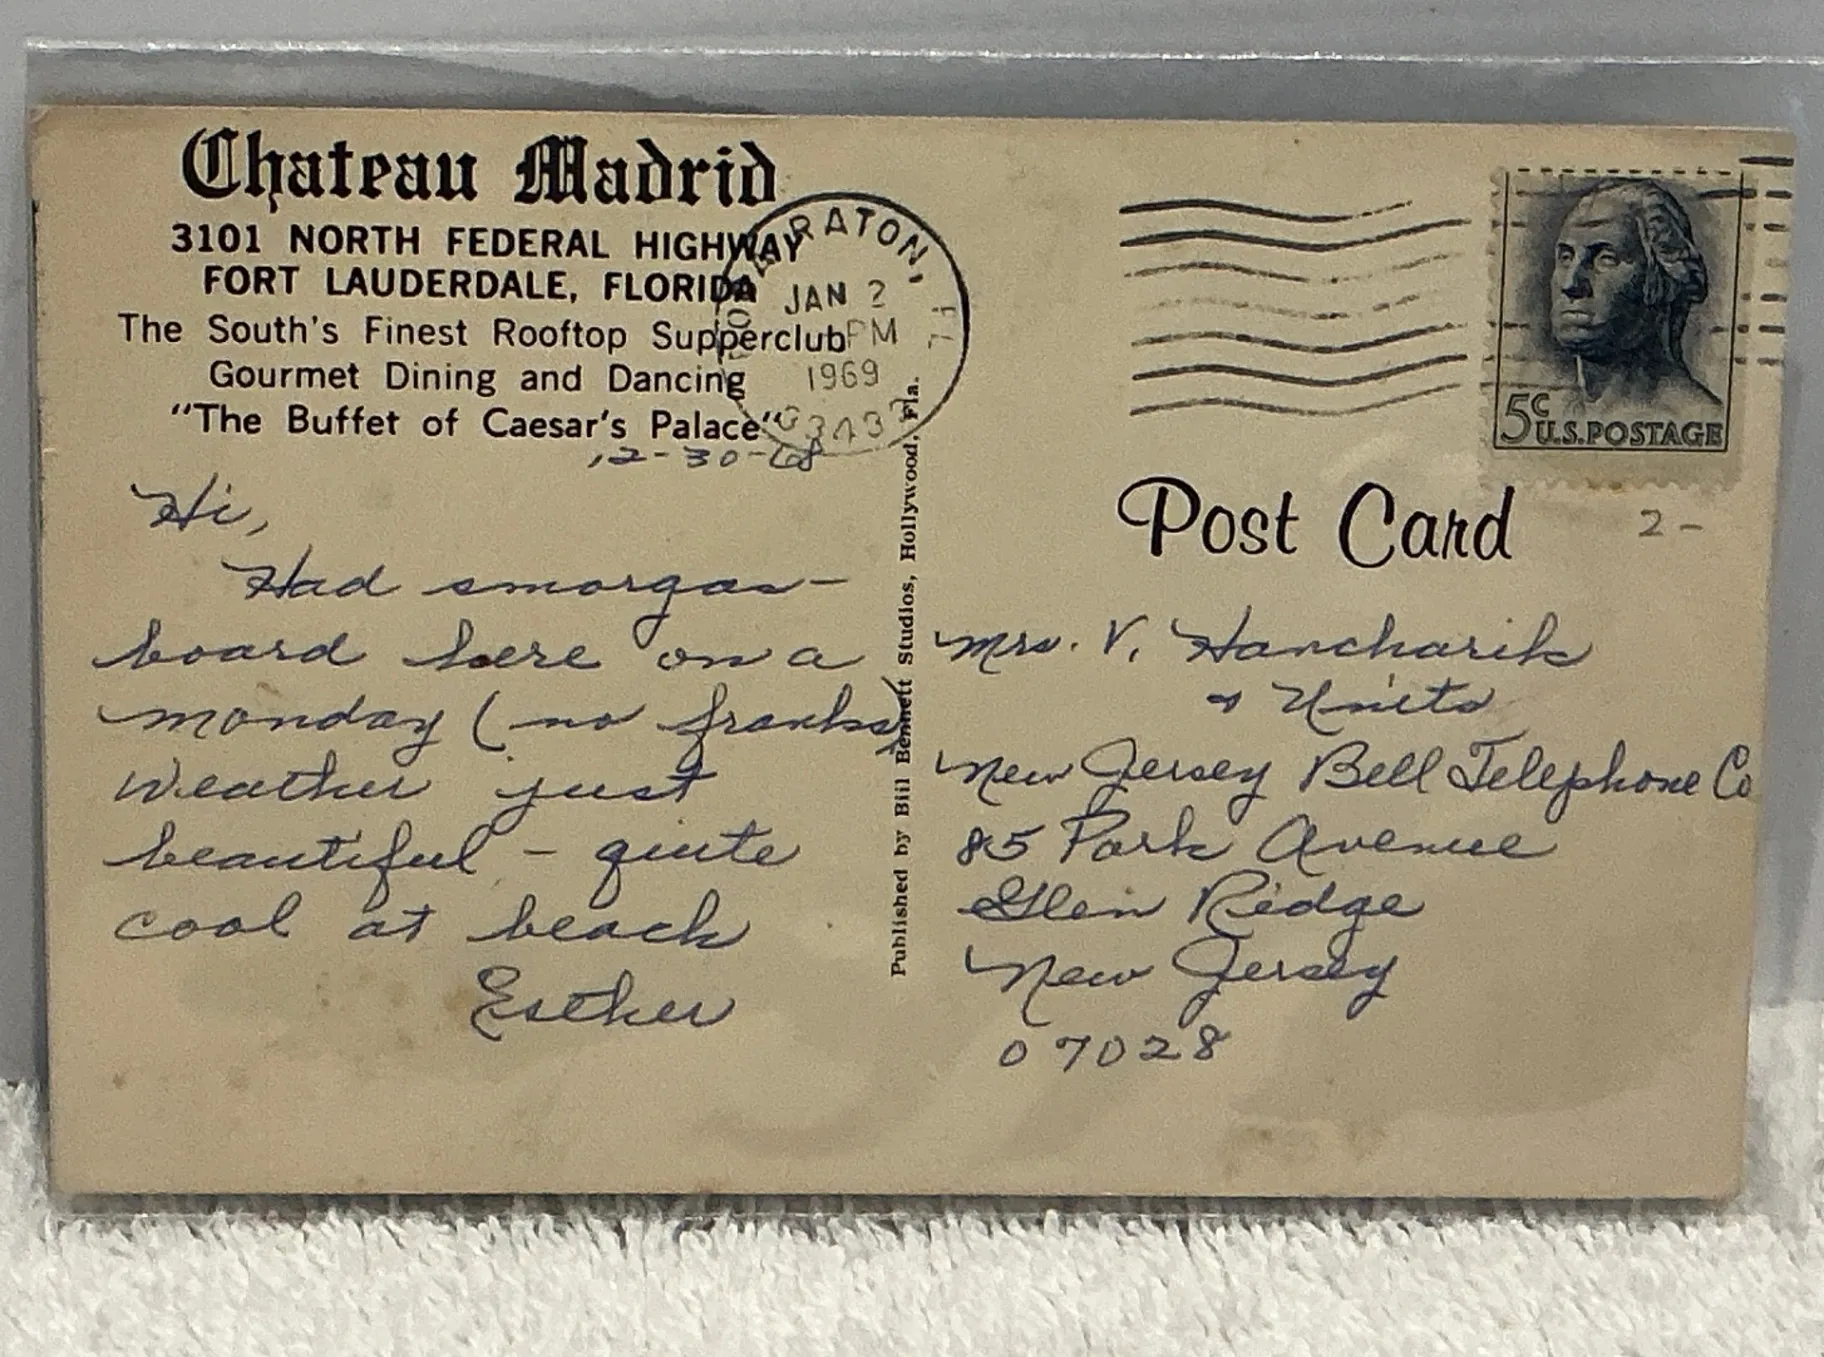 Chateau Madrid
3101 NORTH FEDERAL HIGHWAY
FORT LAUDERDALE, FLORIDA
The South's Finest Rooftop Supperclub
Gourmet Dining and Dancing
"The Buffet of Caesar's Palace"
12-30-68
Hi,
Had smorgas-
board here on a
monday (no franks)
Weather just
beautiful - quite
cool at beach
Esther
Published by Bill Bennett Studios, Hollywood, Fla.
RATON,
JAN 2
PM
1969
5c
U.S. POSTAGE
Post Card
2-
Mrs. V. Hancharik
& Units
New Jersey Bell Telephone Co
85 Park Avenue
Glen Ridge
New Jersey
07028